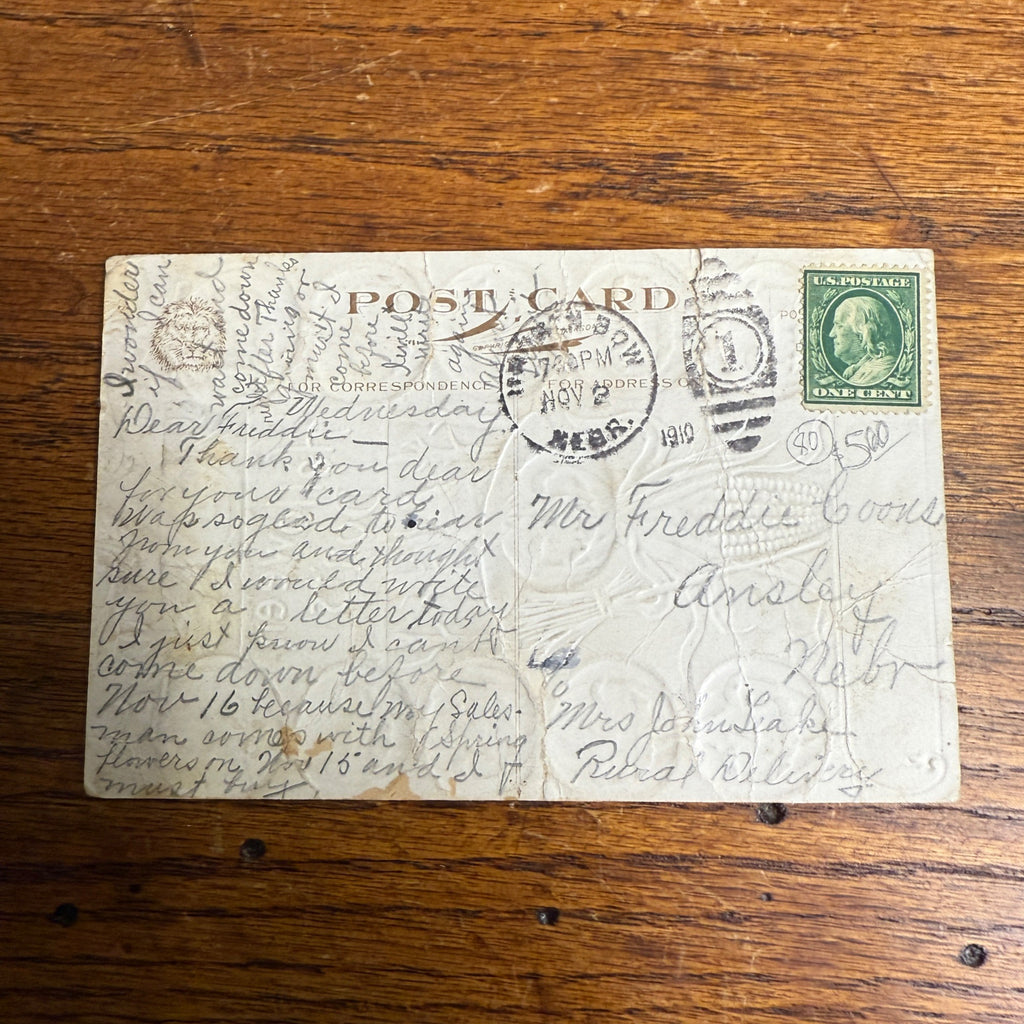 POST CARD
FOR CORRESPONDENCE
FOR ADDRESS O
BROKEN BOW
PM
NOV 2
NEBR.
1910
1
U.S. POSTAGE
ONE CENT
80
500
Wednesday.
Dear Freddie —
Thank you dear
for your card
was so glad to hear
from you and thought
sure I would write
you a letter today
I just know I can't
come down before
Nov 16 because my Sales-
man comes with Spring
flowers on Nov 15 and I
must buy
I wonder
if I can
wait and
come down
after Thanks
giving or
must I
come
Mr Freddie Coons
Ansley
Nebr
c/o
Mrs John Leake
Rural Delivery